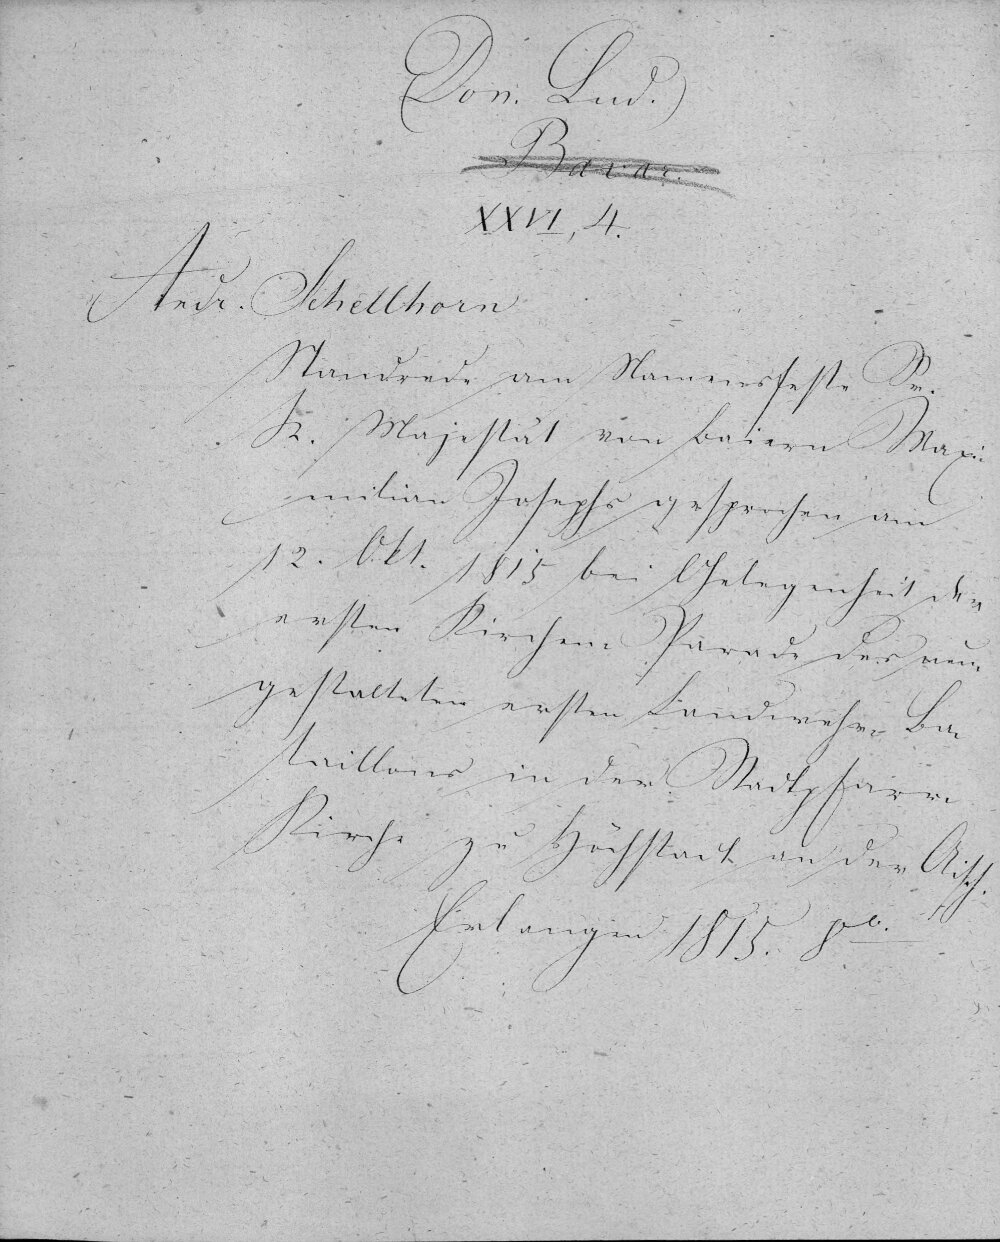 (Don. Lud.)
Bavar.
XXVI, 4.
Andr. Schellhorn
Standrede am Namensfeste Sr.
K. Majestät von Baiern Maxi-
milian Josephs gesprochen am
12. Okt. 1815 bei Gelegenheit der
ersten Kirchen-Parade des neu-
gestalteten ersten Landwehr-Ba-
taillons in der Stadtpfarr-
Kirche zu Höchstadt an der Aisch.
Erlangen 1815. 8o.